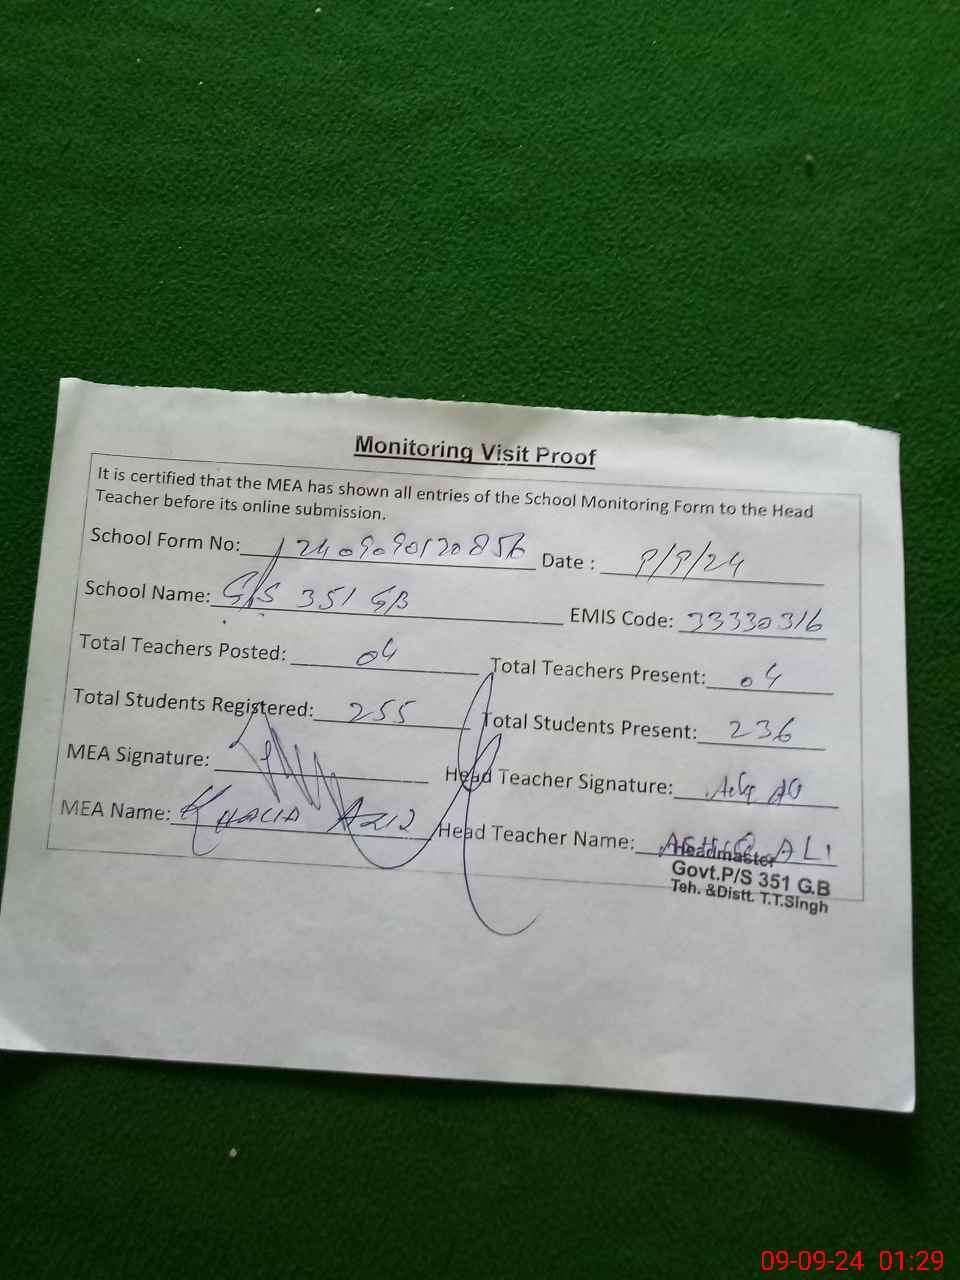 Monitoring Visit Proof
It is certified that the MEA has shown all entries of the School Monitoring Form to the Head
Teacher before its online submission.
School Form No: 12409090120856 Date : 9/9/24
School Name: G/S 351 GB EMIS Code: 33330316
Total Teachers Posted: 04 Total Teachers Present: 04
Total Students Registered: 255 Total Students Present: 236
MEA Signature: Head Teacher Signature:
MEA Name: KHALID AZIZ Head Teacher Name: ALI
Headmaster
Govt.P/S 351 G.B
Teh. &Distt. T.T.Singh
09-09-24 01:29